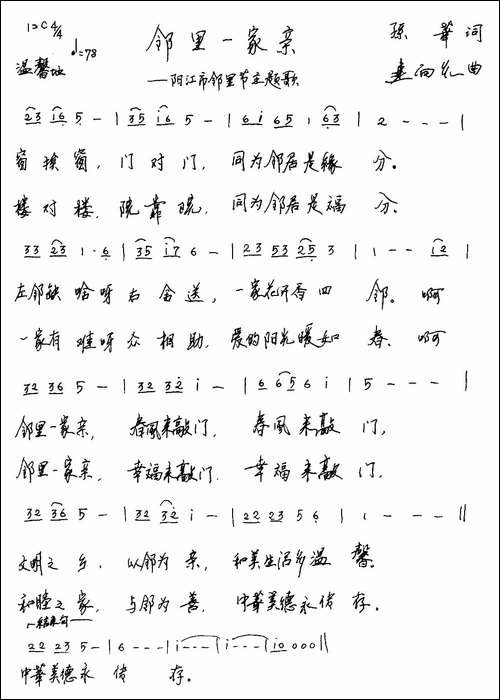 1=C 4/4 邻里一家亲 孙華词
温馨地 ♩=78
——阳江市邻里节主题歌 曲
23 i6 5 - | 35 i6 5 - | 6 i 65 1 63 | 2 - - - |
窗挨窗，门对门，同为邻居是缘分。
楼对楼，院靠院，同为邻居是福分。
33 23 1·6 | 35 i7 6 - | 23 53 25 3 | 1 - - i2 |
左邻缺啥呀右舍送，一家花开香四邻。啊
一家有难呀众相助，爱的阳光暖如春。啊
32 36 5 - | 32 32 i - | 6 65 6 i | 5 - - - |
邻里一家亲，春風来敲门，春風来敲门，
邻里一家亲，幸福来敲门，幸福来敲门，
32 36 5 - | 32 32 i - | 22 23 5 6 | i - - - ||
文明之乡，以邻为亲，和美生活多温馨。
和睦之家，与邻为善，中華美德永传存。
结束句
22 23 5 - | 6 - - - | i - - - | i - - - | i0 0 0 0 ||
中華美德永传存。